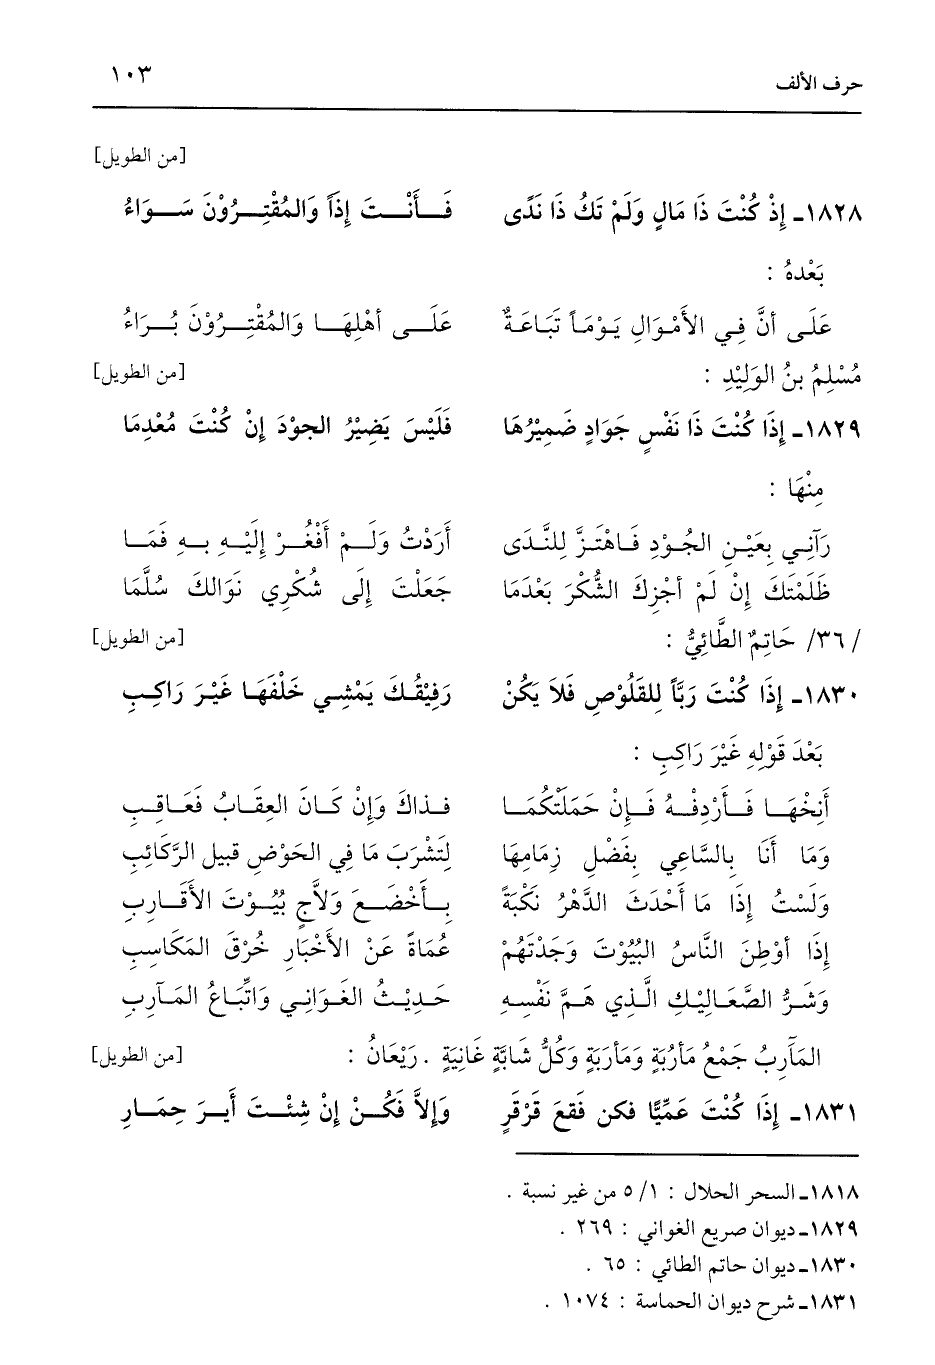 حرف الألف ١٠٣
[من الطويل]
١٨٢٨ـ إِذْ كُنْتَ ذَا مَالٍ وَلَمْ تَكُ ذَا نَدًى فَــأَنْــتَ إِذَاً وَالمُقْتِــرُوْنَ سَــوَاءُ
بَعْدهُ :
عَلَى أنَّ فِي الأَمْوَالِ يَوْمَاً تَبَاعَةٌ عَلَــى أهْلِهَــا وَالمُقْتِــرُوْنَ بُــرَاءُ
مُسْلِمُ بنُ الوَلِيْدِ : [من الطويل]
١٨٢٩ـ إِذَا كُنْتَ ذَا نَفْسٍ جَوَادٍ ضَمِيْرُهَا فَلَيْسَ يَضِيْرُ الجوْدَ إِنْ كُنْتَ مُعْدِمَا
مِنْهَا :
رَآنِي بِعَيْنِ الجُوْدِ فَاهْتَزَّ لِلنَّدَى أَرَدْتُ وَلَــمْ أَفْغُــرْ إِلَيْــهِ بِــهِ فَمَــا
ظَلَمْتَكَ إِنْ لَمْ أجْزِكَ الشُّكْرَ بَعْدَمَا جَعَلْتَ إِلَى شُكْرِي نَوَالكَ سُلَّمَا
/ ٣٦/ حَاتِمُ الطَّائِيُّ : [من الطويل]
١٨٣٠ـ إِذَا كُنْتَ رَبَّاً لِلقَلُوْصِ فَلاَ يَكُنْ رَفِيْقُـكَ يَمْشِـي خَلْفَهَـا غَيْرَ رَاكِـبِ
بَعْدَ قَوْلِهِ غَيْرَ رَاكِبِ :
أَنِخْهَــا فَــأَرْدِفْــهُ فَــإِنْ حَمَلَتْكُمَــا فــذاكَ وَإِنْ كَــانَ العِقَــابُ فَعَــاقِــبِ
وَمَا أنَا بِالسَّاعِي بِفَضْلِ زِمَامِهَا لِتَشْرَبَ مَا فِي الحَوْضِ قبيل الرَّكَائِبِ
وَلَسْتُ إِذَا مَا أَحْدَثَ الدَّهْرُ نَكْبَةً بِــأَخْضَــعَ وَلاَّجٍ بُيُــوْتَ الأَقَــارِبِ
إِذَا أوْطِنَ النَّاسُ البُيُوْتَ وَجَدْتَهُمْ عُمَاةً عَنْ الأَخْبَارِ خُرْقَ المَكَاسِبِ
وَشَــرُّ الصَّعَالِيْـكِ الَّـذِي هَـمَّ نَفْسِـهِ حَدِيْثُ الغَوَانِي وَاتِّبَاعُ المَآرِبِ
المَآرِبُ جَمْعُ مَأرُبَةٍ وَمَأرَبَةٍ وَكُلُّ شَابَّةٍ غَانِيَةٍ . رَيْعَانُ : [من الطويل]
١٨٣١ـ إِذَا كُنْتَ عَمِّيًّا فكن فَقعَ قَرْقَرٍ وَإِلاَّ فَكُــنْ إِنْ شِئْــتَ أَيــرَ حِمَــارِ
١٨١٨ـ السحر الحلال : ١/ ٥ من غير نسبة .
١٨٢٩ـ ديوان صريع الغواني : ٢٦٩ .
١٨٣٠ـ ديوان حاتم الطائي : ٦٥ .
١٨٣١ـ شرح ديوان الحماسة : ١٠٧٤ .